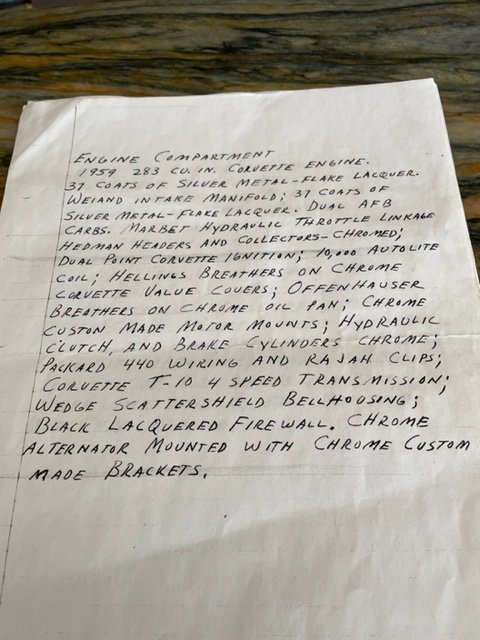 ENGINE COMPARTMENT
1959 283 CU. IN. CORVETTE ENGINE.
37 COATS OF SILVER METAL-FLAKE LACQUER.
WEIAND INTAKE MANIFOLD; 37 COATS OF
SILVER METAL-FLAKE LACQUER. DUAL AFB
CARBS. MARBET HYDRAULIC THROTTLE LINKAGE
HEDMAN HEADERS AND COLLECTORS-CHROMED;
DUAL POINT CORVETTE IGNITION; 10,000 AUTOLITE
COIL; HELLINGS BREATHERS ON CHROME
CORVETTE VALUE COVERS; OFFENHAUSER
BREATHERS ON CHROME OIL PAN; CHROME
CUSTON MADE MOTOR MOUNTS; HYDRAULIC
CLUTCH, AND BRAKE CYLINDERS CHROME;
PACKARD 440 WIRING AND RAJAH CLIPS;
CORVETTE T-10 4 SPEED TRANSMISSION;
WEDGE SCATTERSHIELD BELLHOUSING;
BLACK LACQUERED FIREWALL. CHROME
ALTERNATOR MOUNTED WITH CHROME CUSTOM
MADE BRACKETS.